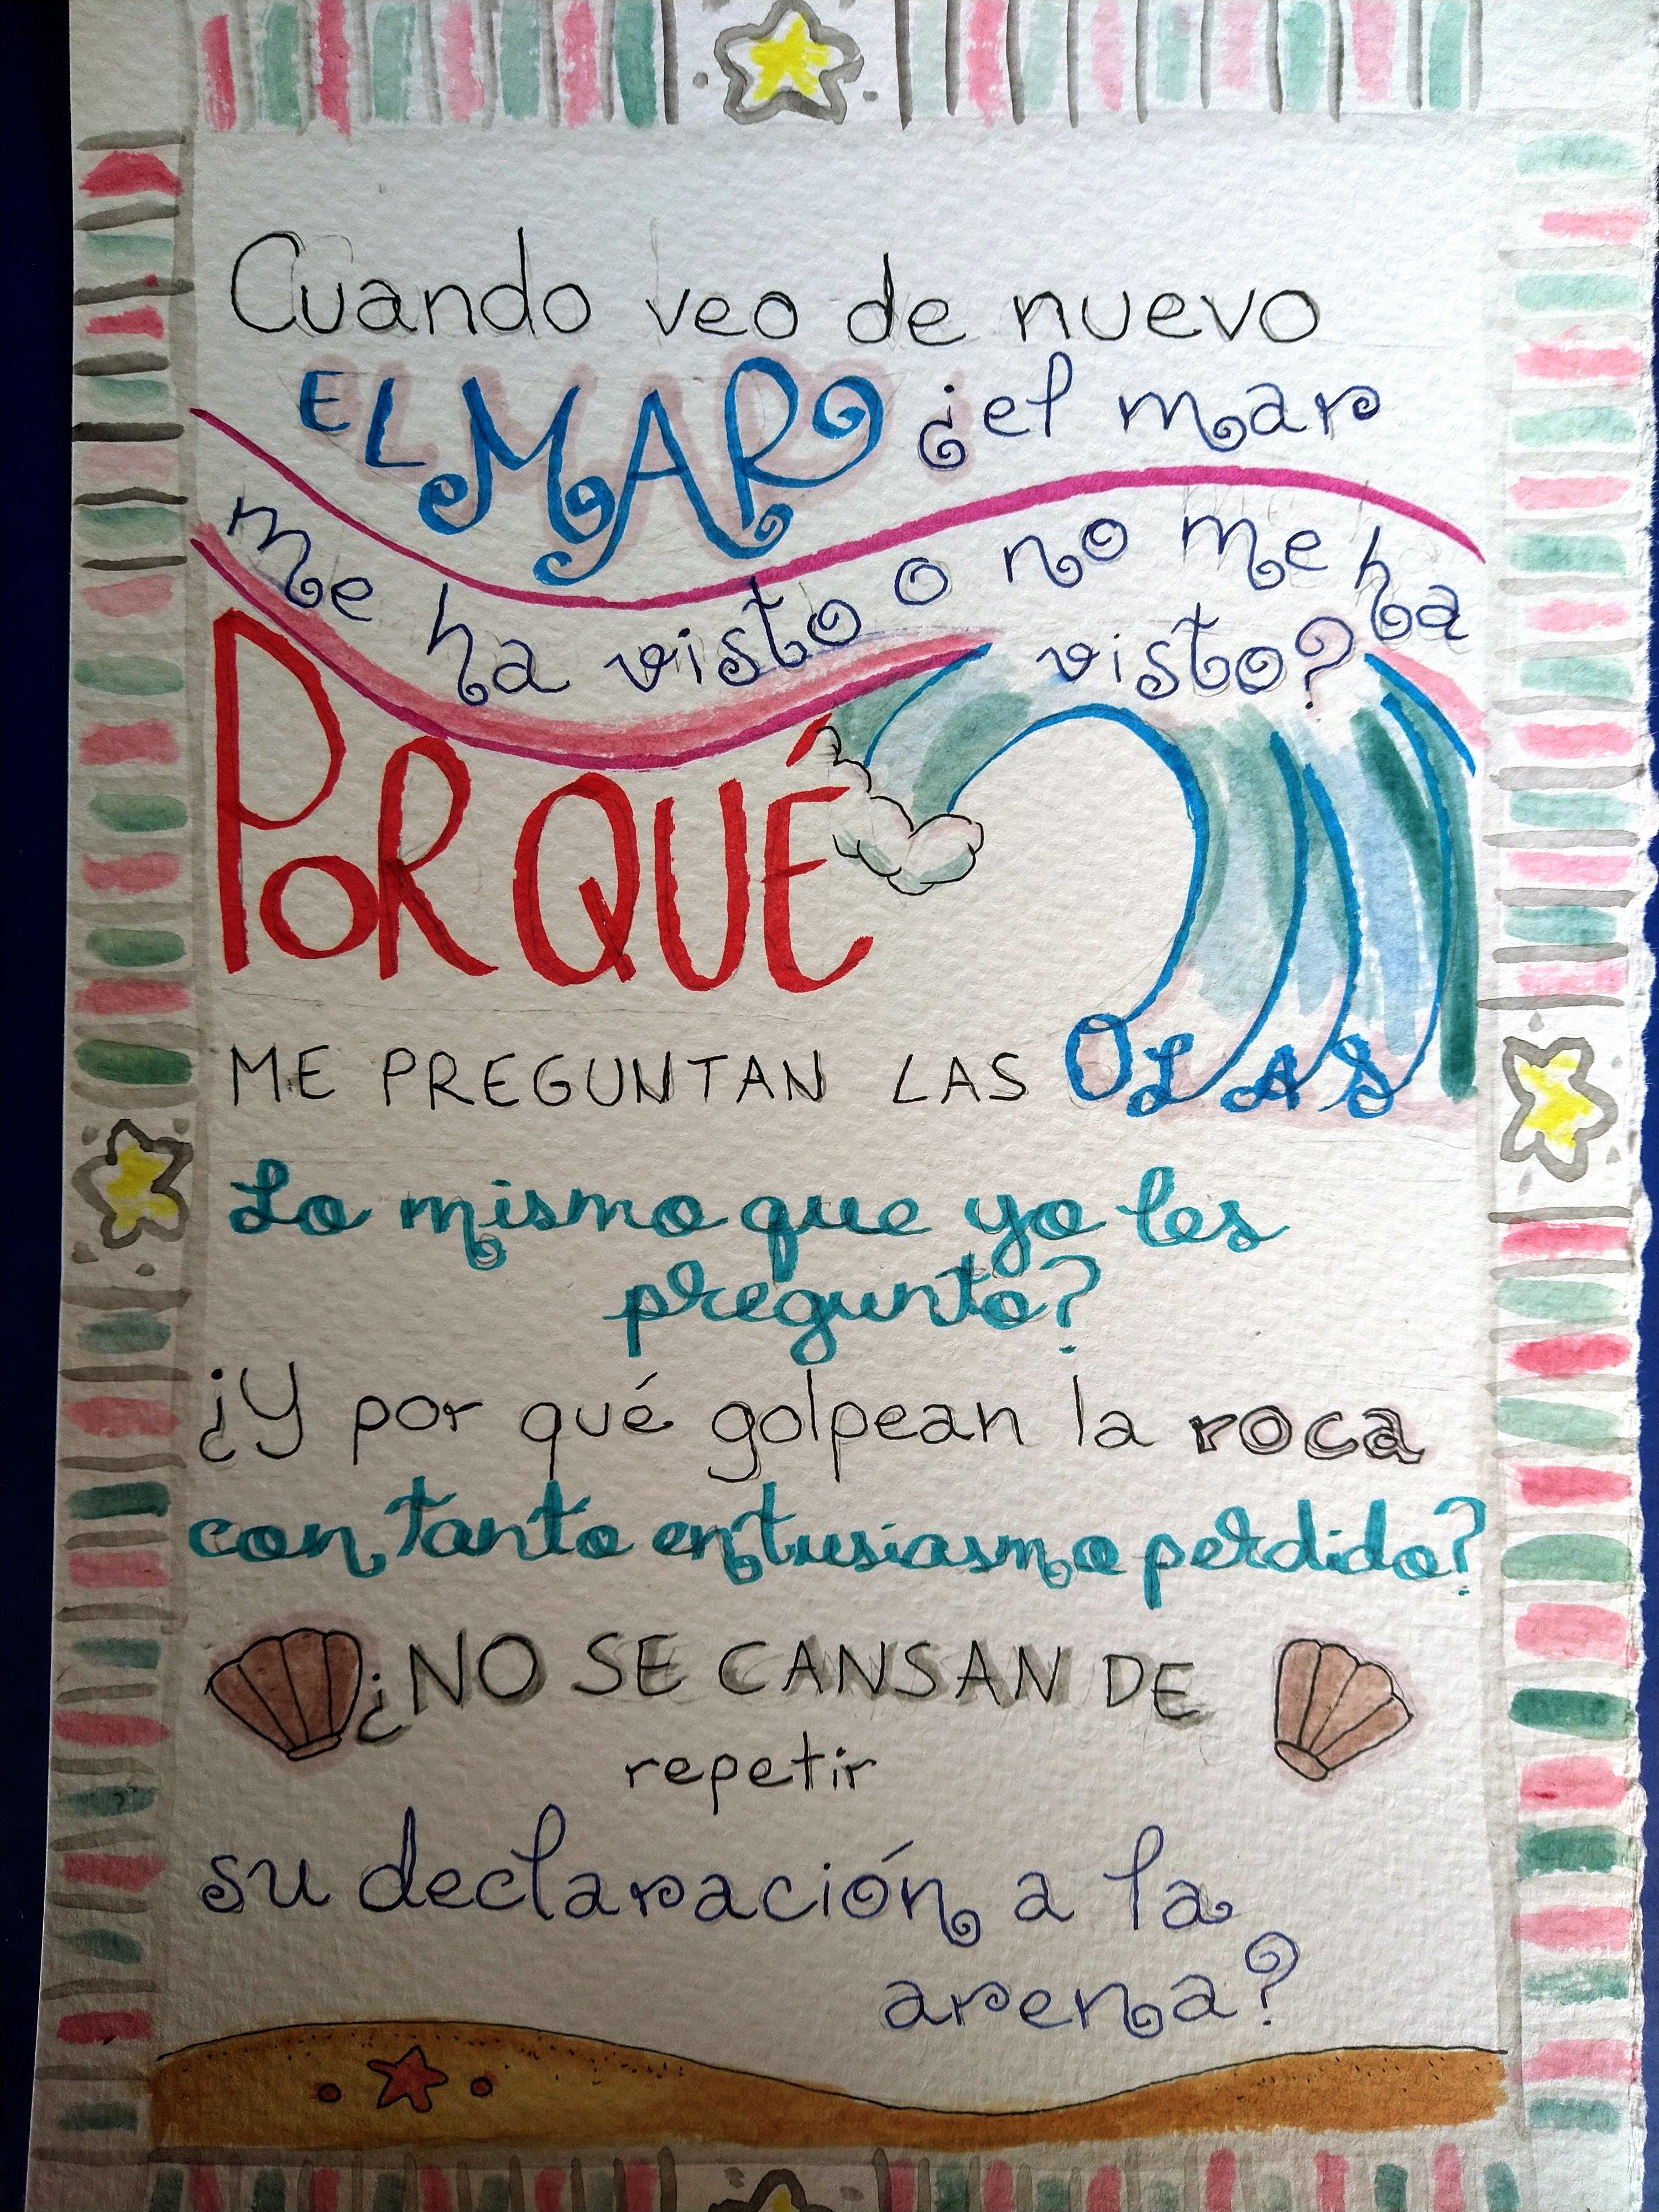 Cuando veo de nuevo
EL MAR ¿el mar
me ha visto o no me ha
visto?
POR QUÉ
ME PREGUNTAN LAS OLAS
Lo mismo que yo les
pregunto?
¿Y por qué golpean la roca
con tanto entusiasmo perdido?
¿NO SE CANSAN DE
repetir
su declaración a la
arena?